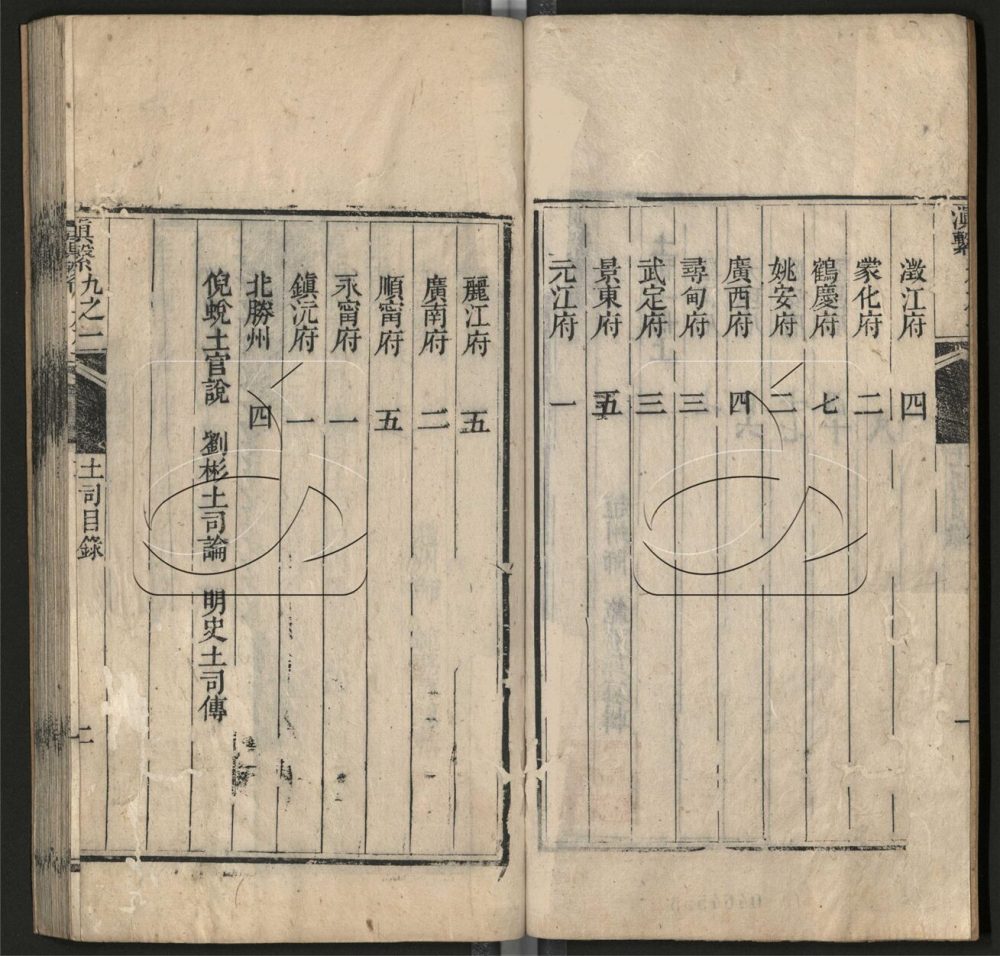 滇繫
澂江府 四
蒙化府 二
鶴慶府 七
姚安府 二
廣西府 四
尋甸府 三
武定府 三
景東府 五
元江府 一
麗江府 五
廣南府 二
順甯府 五
永甯府 一
鎮沅府 一
北勝州 四
倪蛻土官說 劉彬土司論 明史土司傳
滇繫九之二 土司目錄 二